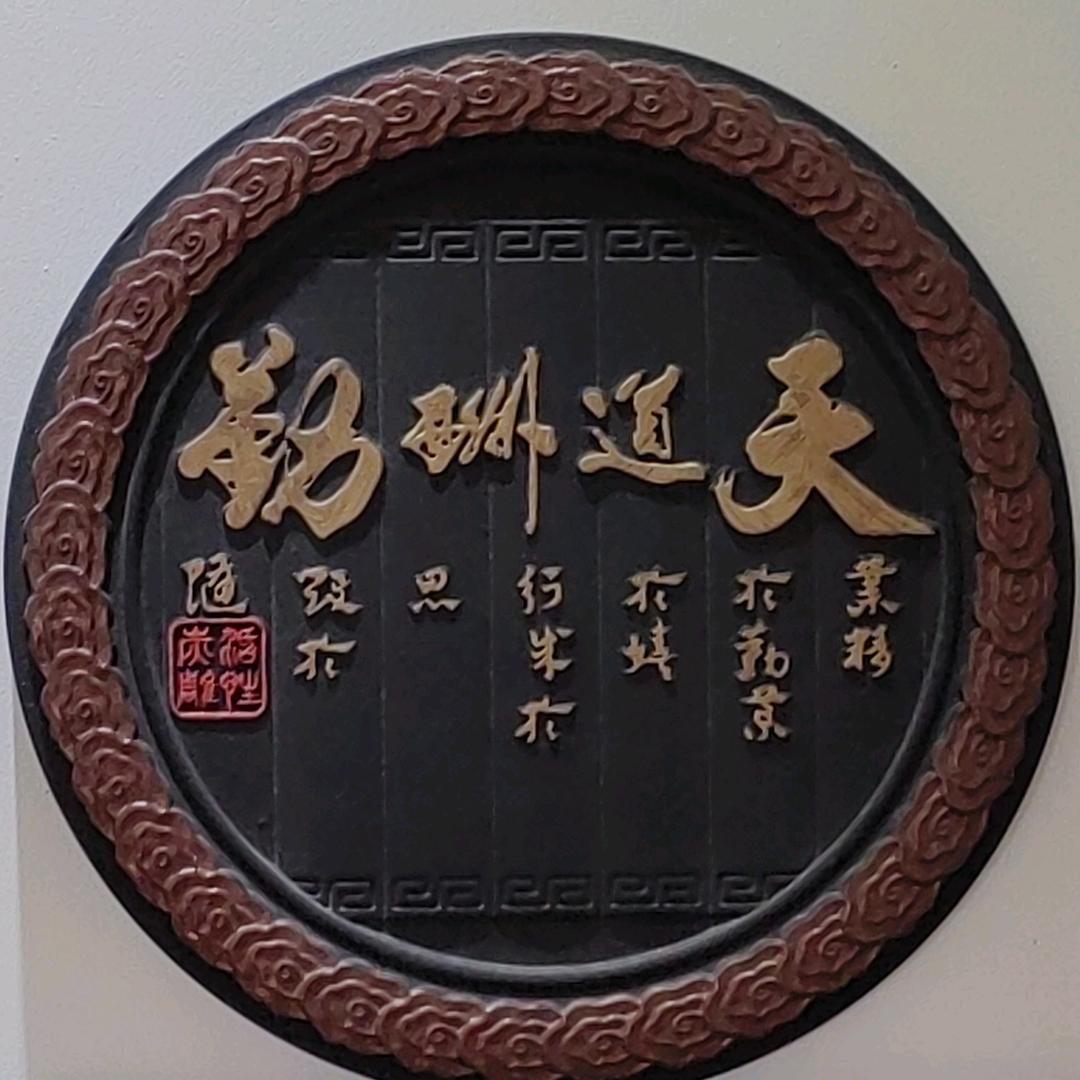 天道酬勤
業精
於勤荒
於嬉
行成於
思
毀於
随
性
木雕